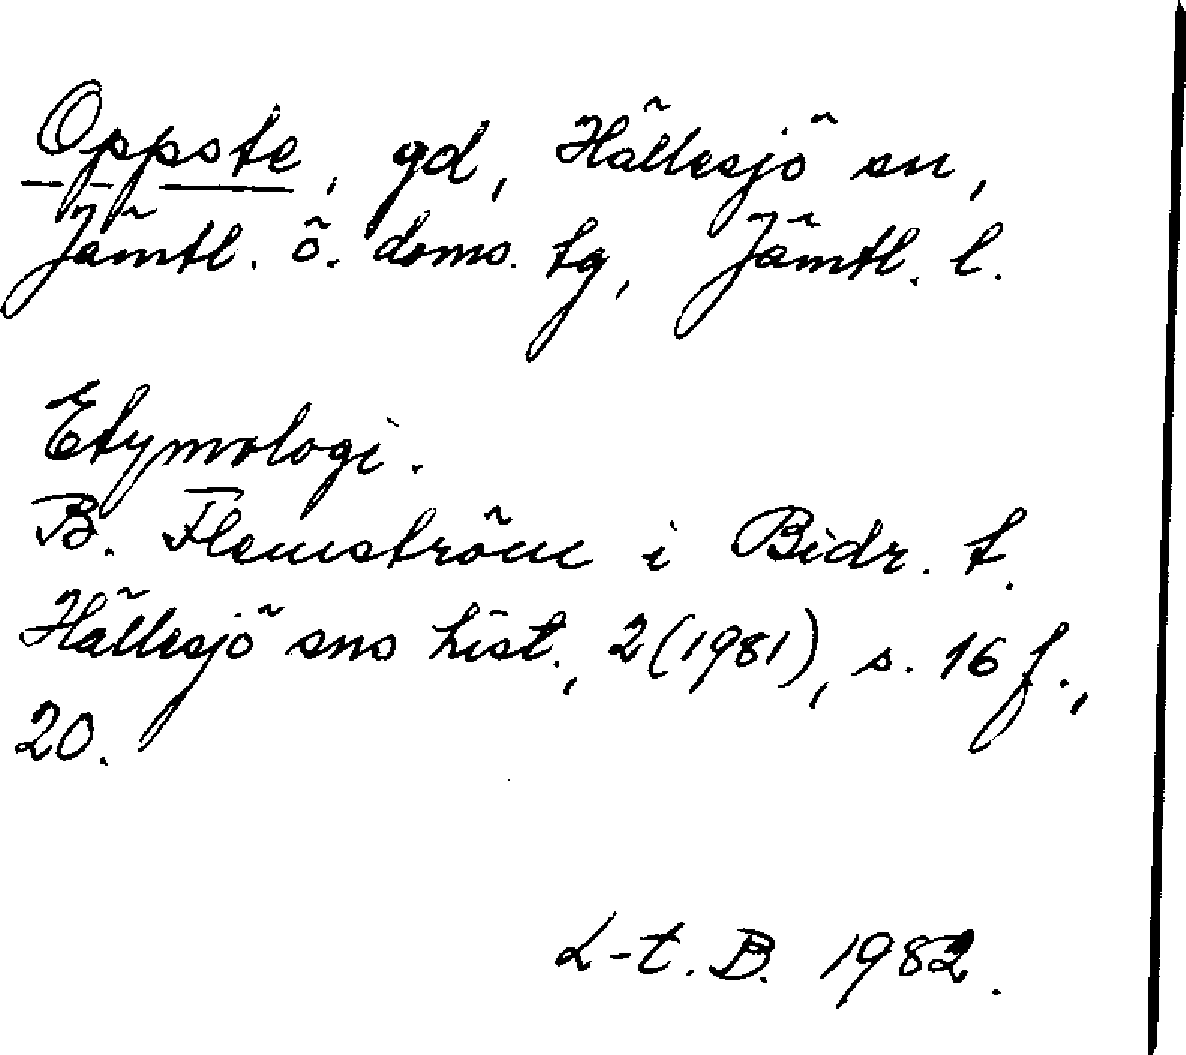 Oppste, gd, Hällesjö sn,
Jämtl. ö. doms. tg, Jämtl. l.
Etymologi.
B. Flemström i Bidr. t.
Hällesjö sns hist., 2 (1981), s. 16 f.,
20.
L-t. B. 1982.